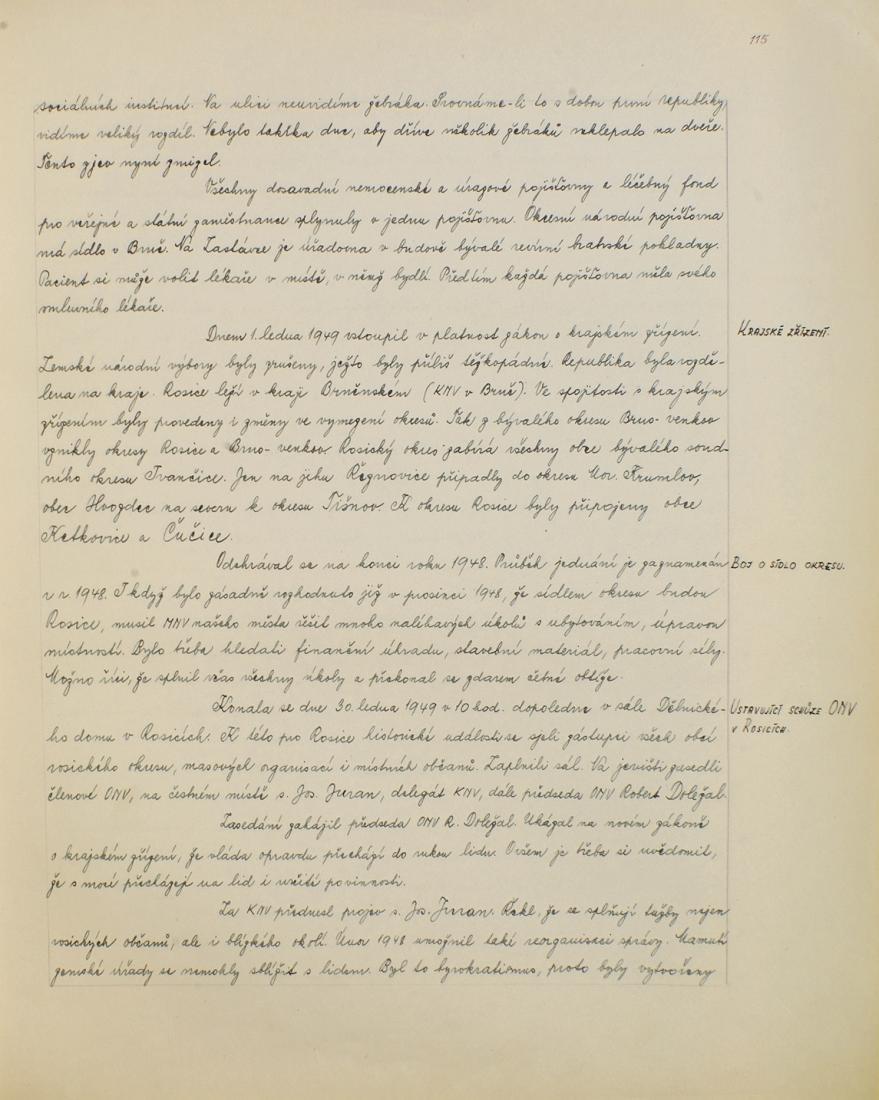 115
sociálních institucí. Na ulici neuvidíme žebráka. Srovnáme-li to s dobou první republiky
vidíme veliký rozdíl. Nebylo takřka dne, aby dříve několik žebráků neklepalo na dveře.
Tento zjev nyní zmizel.
Všechny dosavadní nemocenské a úrazové pojišťovny a léčebný fond
pro veřejné a státní zaměstnance splynuly v jednu pojišťovnu. Okresní národní pojišťovna
má sídlo v Brně. Na Zastávce je úřadovna v budově bývalé revírní bratrské pokladny.
Pacient si může volit lékaře v místě, v němž bydlí. Předtím každá pojišťovna měla svého
smluvního lékaře.
Dnem 1. ledna 1949 vstoupil v platnost zákon o krajském zřízení.
KRAJSKÉ ZŘÍZENÍ.
Zemské národní výbory byly zrušeny, ježto byly příliš těžkopádné. Republika byla rozdě-
lena na kraje. Rosice leží v kraji Brněnském (KNV v Brně). Ve spojitosti s krajským
zřízením byly provedeny i změny ve vymezení okresů. Tak z bývalého okresu Brno-venkov
vznikly okresy Rosice a Brno-venkov. Rosický okres zabírá všechny obce bývalého soud-
ního okresu Ivančice. Jen na jihu Řeznovice připadly do okresu Mor. Krumlov,
obec Hvozdec na severu k okresu Tišnov. K okresu Rosice byly připojeny obce
Ketkovice a Čučice.
Odehrával se na konci roku 1948. Průběh jednání je zaznamenán
BOJ O SÍDLO OKRESU.
v r. 1948. I když bylo zásadně rozhodnuto již v prosinci 1948, že sídlem okresu budou
Rosice, musil MNV našeho města řešit mnoho naléhavých úkolů s ubytováním, úpravou
místností. Bylo třeba hledati finanční úhradu, stavební materiál, pracovní síly.
Možno říci, že splnil včas všechny úkoly a překonal se zdarem četné obtíže.
Konala se dne 30. ledna 1949 v 10 hod. dopoledne v sále Dělnické-
USTAVUJÍCÍ SCHŮZE ONV
V ROSICÍCH.
ho domu v Rosicích. K této pro Rosice historické události se sjeli zástupci všech obcí
rosického okresu, masových organisací i místních občanů. Zaplnili sál. Na jevišti zasedli
členové ONV, na čestném místě s. Jos. Juran, delegát KNV, dále předseda ONV Robert Doležal.
Zasedání zahájil předseda ONV R. Doležal. Ukázal na novém zákoně
o krajském zřízení, že vláda opravdu přechází do rukou lidu. Ovšem je třeba si uvědomit,
že s mocí přecházejí na lid i určité povinnosti.
Za KNV přednesl projev s. Jos. Juran. Řekl, že se splňují tužby nejen
rosických občanů, ale i blízkého okolí. Únor 1948 umožnil také reorganisaci správy. Mamutí
zemské úřady se nemohly sblížit s lidem. Byl to byrokratismus, proto byly vytvořeny